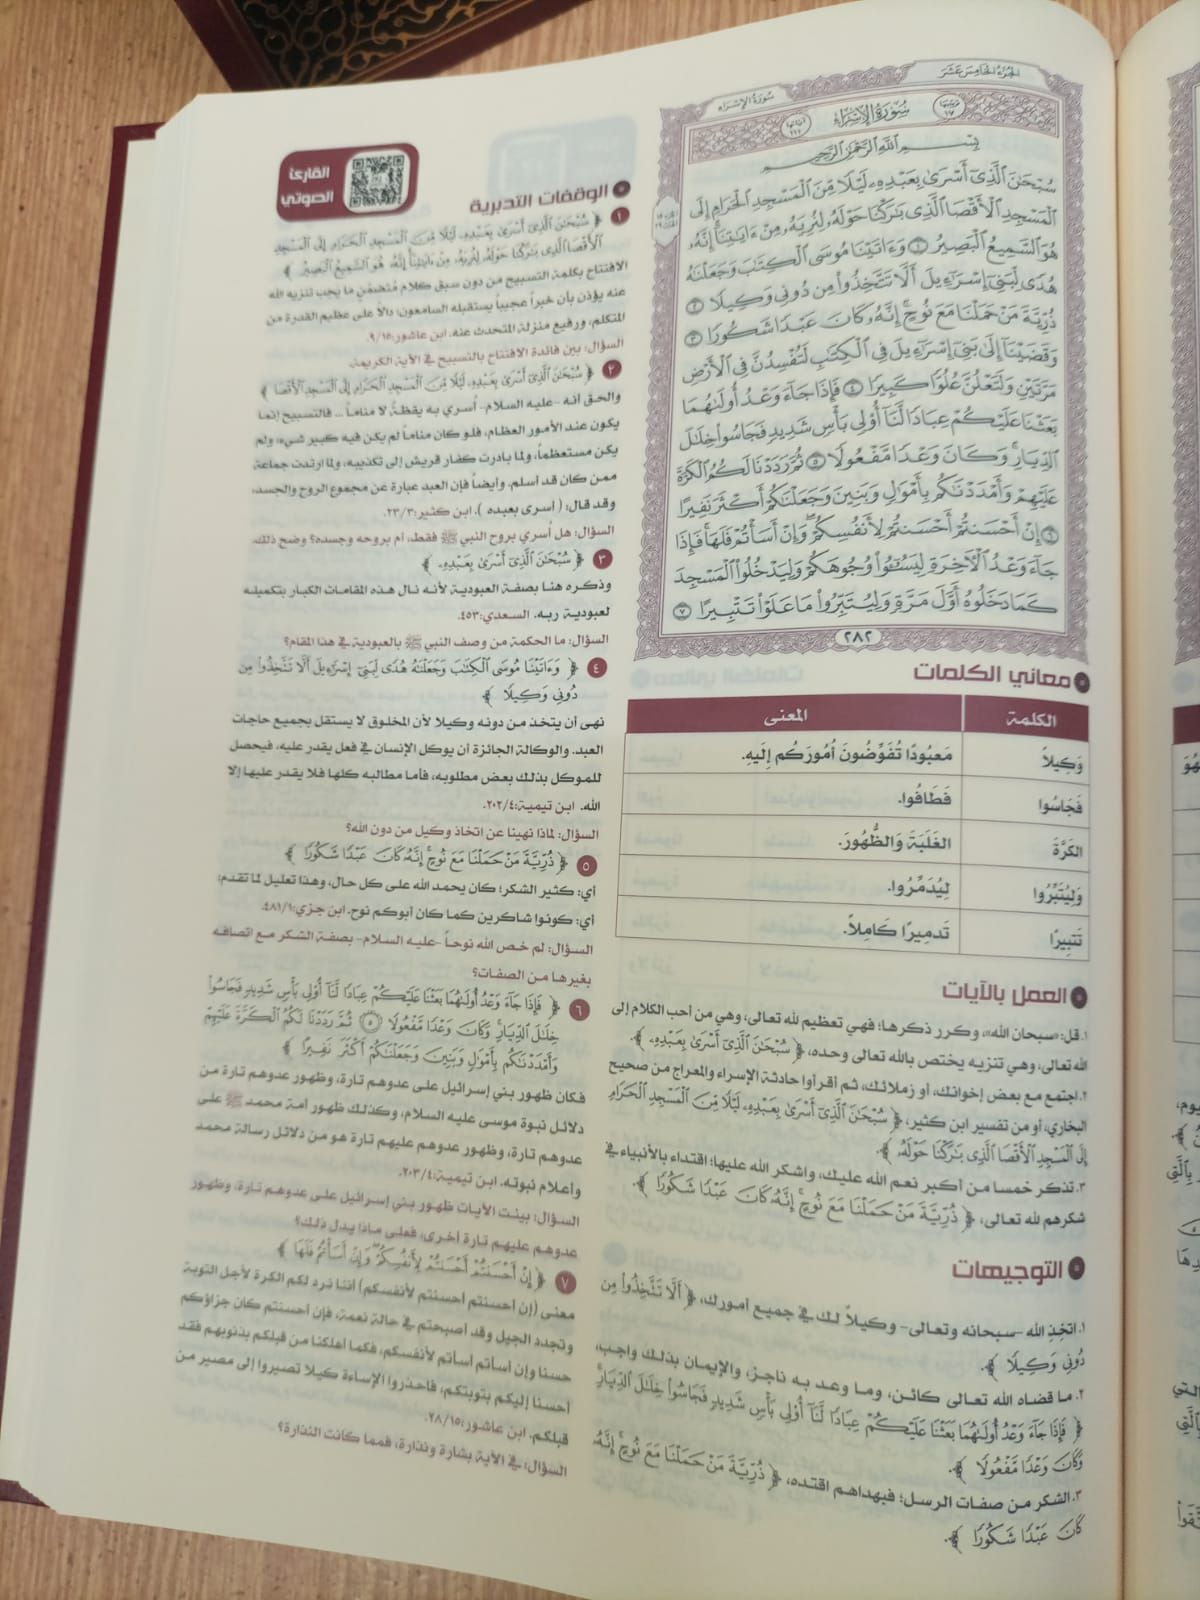 الجزء الخامس عشر
سورة الإسراء
ترتيبها ١٧
سُورَةُ الإِسْرَاءِ
آياتها ١١١
بِسْمِ اللَّهِ الرَّحْمَٰنِ الرَّحِيمِ
سُبْحَٰنَ ٱلَّذِىٓ أَسْرَىٰ بِعَبْدِهِۦ لَيْلًا مِّنَ ٱلْمَسْجِدِ ٱلْحَرَامِ إِلَى
ٱلْمَسْجِدِ ٱلْأَقْصَا ٱلَّذِى بَٰرَكْنَا حَوْلَهُۥ لِنُرِيَهُۥ مِنْ ءَايَٰتِنَآ إِنَّهُۥ
هُوَ ٱلسَّمِيعُ ٱلْبَصِيرُ ١ وَءَاتَيْنَا مُوسَى ٱلْكِتَٰبَ وَجَعَلْنَٰهُ
هُدًى لِّبَنِىٓ إِسْرَٰٓءِيلَ أَلَّا تَتَّخِذُوا۟ مِن دُونِى وَكِيلًا ٢
ذُرِّيَّةَ مَنْ حَمَلْنَا مَعَ نُوحٍ إِنَّهُۥ كَانَ عَبْدًا شَكُورًا ٣
وَقَضَيْنَآ إِلَىٰ بَنِىٓ إِسْرَٰٓءِيلَ فِى ٱلْكِتَٰبِ لَتُفْسِدُنَّ فِى ٱلْأَرْضِ
مَرَّتَيْنِ وَلَتَعْلُنَّ عُلُوًّا كَبِيرًا ٤ فَإِذَا جَآءَ وَعْدُ أُولَىٰهُمَا
بَعَثْنَا عَلَيْكُمْ عِبَادًا لَّنَآ أُو۟لِى بَأْسٍ شَدِيدٍ فَجَاسُوا۟ خِلَٰلَ
ٱلدِّيَارِ وَكَانَ وَعْدًا مَّفْعُولًا ٥ ثُمَّ رَدَدْنَا لَكُمُ ٱلْكَرَّةَ
عَلَيْهِمْ وَأَمْدَدْنَٰكُم بِأَمْوَٰلٍ وَبَنِينَ وَجَعَلْنَٰكُمْ أَكْثَرَ نَفِيرًا
٦ إِنْ أَحْسَنتُمْ أَحْسَنتُمْ لِأَنفُسِكُمْ وَإِنْ أَسَأْتُمْ فَلَهَا فَإِذَا
جَآءَ وَعْدُ ٱلْءَاخِرَةِ لِيَسُۥٓـُٔوا۟ وُجُوهَكُمْ وَلِيَدْخُلُوا۟ ٱلْمَسْجِدَ
كَمَا دَخَلُوهُ أَوَّلَ مَرَّةٍ وَلِيُتَبِّرُوا۟ مَا عَلَوْا۟ تَتْبِيرًا ٧
٢٨٢
معاني الكلمات
الكلمة المعنى
وَكِيلاً مَعبُودًا تُفَوِّضُونَ أُمُورَكُم إِلَيهِ.
فَجَاسُوا فَطَافُوا.
الكَرَّةَ الغَلَبَةَ وَالظُّهُورَ.
وَلِيُتَبِّرُوا لِيُدَمِّرُوا.
تَتبِيرًا تَدمِيرًا كَامِلاً.
العمل بالآيات
١. قل: «سبحان الله»، وكرر ذكرها؛ فهي تعظيم لله تعالى، وهي من أحب الكلام إلى
الله تعالى، وهي تنزيه يختص بالله تعالى وحده، ﴿ سُبْحَٰنَ ٱلَّذِىٓ أَسْرَىٰ بِعَبْدِهِۦ ﴾.
٢. اجتمع مع بعض إخوانك، أو زملائك، ثم اقرأوا حادثة الإسراء والمعراج من صحيح
البخاري، أو من تفسير ابن كثير، ﴿ سُبْحَٰنَ ٱلَّذِىٓ أَسْرَىٰ بِعَبْدِهِۦ لَيْلًا مِّنَ ٱلْمَسْجِدِ ٱلْحَرَامِ
إِلَى ٱلْمَسْجِدِ ٱلْأَقْصَا ٱلَّذِى بَٰرَكْنَا حَوْلَهُۥ ﴾.
٣. تذكر خمسا من أكبر نعم الله عليك، واشكر الله عليها؛ اقتداء بالأنبياء في
شكرهم لله تعالى، ﴿ ذُرِّيَّةَ مَنْ حَمَلْنَا مَعَ نُوحٍ إِنَّهُۥ كَانَ عَبْدًا شَكُورًا ﴾.
التوجيهات
١. اتخِذِ الله -سبحانه وتعالى- وكيلاً لك في جميع أمورك، ﴿ أَلَّا تَتَّخِذُوا۟ مِن
دُونِى وَكِيلًا ﴾.
٢. ما قضاه الله تعالى كائن، وما وعد به ناجز، والإيمان بذلك واجب،
﴿ فَإِذَا جَآءَ وَعْدُ أُولَىٰهُمَا بَعَثْنَا عَلَيْكُمْ عِبَادًا لَّنَآ أُو۟لِى بَأْسٍ شَدِيدٍ فَجَاسُوا۟ خِلَٰلَ ٱلدِّيَارِ
وَكَانَ وَعْدًا مَّفْعُولًا ﴾.
٣. الشكر من صفات الرسل؛ فبهداهم اقتده، ﴿ ذُرِّيَّةَ مَنْ حَمَلْنَا مَعَ نُوحٍ إِنَّهُۥ
كَانَ عَبْدًا شَكُورًا ﴾.
القارئ
الصوتي
الوقفات التدبرية
١ ﴿ سُبْحَٰنَ ٱلَّذِىٓ أَسْرَىٰ بِعَبْدِهِۦ لَيْلًا مِّنَ ٱلْمَسْجِدِ ٱلْحَرَامِ إِلَى ٱلْمَسْجِدِ
ٱلْأَقْصَا ٱلَّذِى بَٰرَكْنَا حَوْلَهُۥ لِنُرِيَهُۥ مِنْ ءَايَٰتِنَآ إِنَّهُۥ هُوَ ٱلسَّمِيعُ ٱلْبَصِيرُ ﴾
الافتتاح بكلمة التسبيح من دون سبق كلام مُتضمنٍ ما يجب تنزيه الله
عنه يؤذن بأن خبراً عجيباً يستقبله السامعون؛ دالاً على عظيم القدرة من
المتكلم، ورفيع منزلة المتحدث عنه. ابن عاشور:٩/١٥.
السؤال: بين فائدة الافتتاح بالتسبيح في الآية الكريمة
٢ ﴿ سُبْحَٰنَ ٱلَّذِىٓ أَسْرَىٰ بِعَبْدِهِۦ لَيْلًا مِّنَ ٱلْمَسْجِدِ ٱلْحَرَامِ إِلَى ٱلْمَسْجِدِ ٱلْأَقْصَا ﴾
والحق أنه -عليه السلام- أُسري به يقظةً لا مناماً ... فالتسبيح إنما
يكون عند الأمور العظام، فلو كان مناماً لم يكن فيه كبير شيء، ولم
يكن مستعظماً، ولما بادرت كفار قريش إلى تكذيبه، ولما ارتدت جماعة
ممن كان قد أسلم. وأيضاً فإن العبد عبارة عن مجموع الروح والجسد،
وقد قال: ( أسرى بعبده ). ابن كثير:٢٣/٣.
السؤال: هل أُسري بروح النبي ﷺ فقط، أم بروحه وجسده؟ وضح ذلك.
٣ ﴿ سُبْحَٰنَ ٱلَّذِىٓ أَسْرَىٰ بِعَبْدِهِۦ ﴾
وذكره هنا بصفة العبودية لأنه نال هذه المقامات الكبار بتكميله
لعبودية ربه. السعدي:٤٥٣.
السؤال: ما الحكمة من وصف النبي ﷺ بالعبودية في هذا المقام؟
٤ ﴿ وَءَاتَيْنَا مُوسَى ٱلْكِتَٰبَ وَجَعَلْنَٰهُ هُدًى لِّبَنِىٓ إِسْرَٰٓءِيلَ أَلَّا تَتَّخِذُوا۟ مِن
دُونِى وَكِيلًا ﴾
نهى أن يتخذ من دونه وكيلا لأن المخلوق لا يستقل بجميع حاجات
العبد. والوكالة الجائزة أن يوكل الإنسان في فعل يقدر عليه، فيحصل
للموكل بذلك بعض مطلوبه، فأما مطالبه كلها فلا يقدر عليها إلا
الله. ابن تيمية:٢٠٢/٤.
السؤال: لماذا نهينا عن اتخاذ وكيل من دون الله؟
٥ ﴿ ذُرِّيَّةَ مَنْ حَمَلْنَا مَعَ نُوحٍ إِنَّهُۥ كَانَ عَبْدًا شَكُورًا ﴾
أي: كثير الشكر؛ كان يحمد الله على كل حال، وهذا تعليل لما تقدم؛
أي: كونوا شاكرين كما كان أبوكم نوح. ابن جزي:٤٨١/١.
السؤال: لم خص الله نوحاً -عليه السلام- بصفة الشكر مع اتصافه
بغيرها من الصفات؟
٦ ﴿ فَإِذَا جَآءَ وَعْدُ أُولَىٰهُمَا بَعَثْنَا عَلَيْكُمْ عِبَادًا لَّنَآ أُو۟لِى بَأْسٍ شَدِيدٍ فَجَاسُوا۟
خِلَٰلَ ٱلدِّيَارِ وَكَانَ وَعْدًا مَّفْعُولًا ٥ ثُمَّ رَدَدْنَا لَكُمُ ٱلْكَرَّةَ عَلَيْهِمْ
وَأَمْدَدْنَٰكُم بِأَمْوَٰلٍ وَبَنِينَ وَجَعَلْنَٰكُمْ أَكْثَرَ نَفِيرًا ﴾
فكان ظهور بني إسرائيل على عدوهم تارة، وظهور عدوهم تارة من
دلائل نبوة موسى عليه السلام، وكذلك ظهور أمة محمد ﷺ على
عدوهم تارة، وظهور عدوهم عليهم تارة هو من دلائل رسالة محمد
وأعلام نبوته. ابن تيمية:٢٠٣/٤.
السؤال: بينت الآيات ظهور بني إسرائيل على عدوهم تارة، وظهور
عدوهم عليهم تارة أخرى، فعلى ماذا يدل ذلك؟
٧ ﴿ إِنْ أَحْسَنتُمْ أَحْسَنتُمْ لِأَنفُسِكُمْ وَإِنْ أَسَأْتُمْ فَلَهَا ﴾
معنى (إن أحسنتم أحسنتم لأنفسكم) أننا نرد لكم الكرة لأجل التوبة
وتجدد الجيل وقد أصبحتم في حالة نعمة، فإن أحسنتم كان جزاؤكم
حسنا وإن أسأتم أسأتم لأنفسكم، فكما أهلكنا من قبلكم بذنوبهم فقد
أحسنا إليكم بتوبتكم، فاحذروا الإساءة كيلا تصيروا إلى مصير من
قبلكم. ابن عاشور:٢٨/١٥.
السؤال: في الآية بشارة ونذارة، فمما كانت النذارة؟